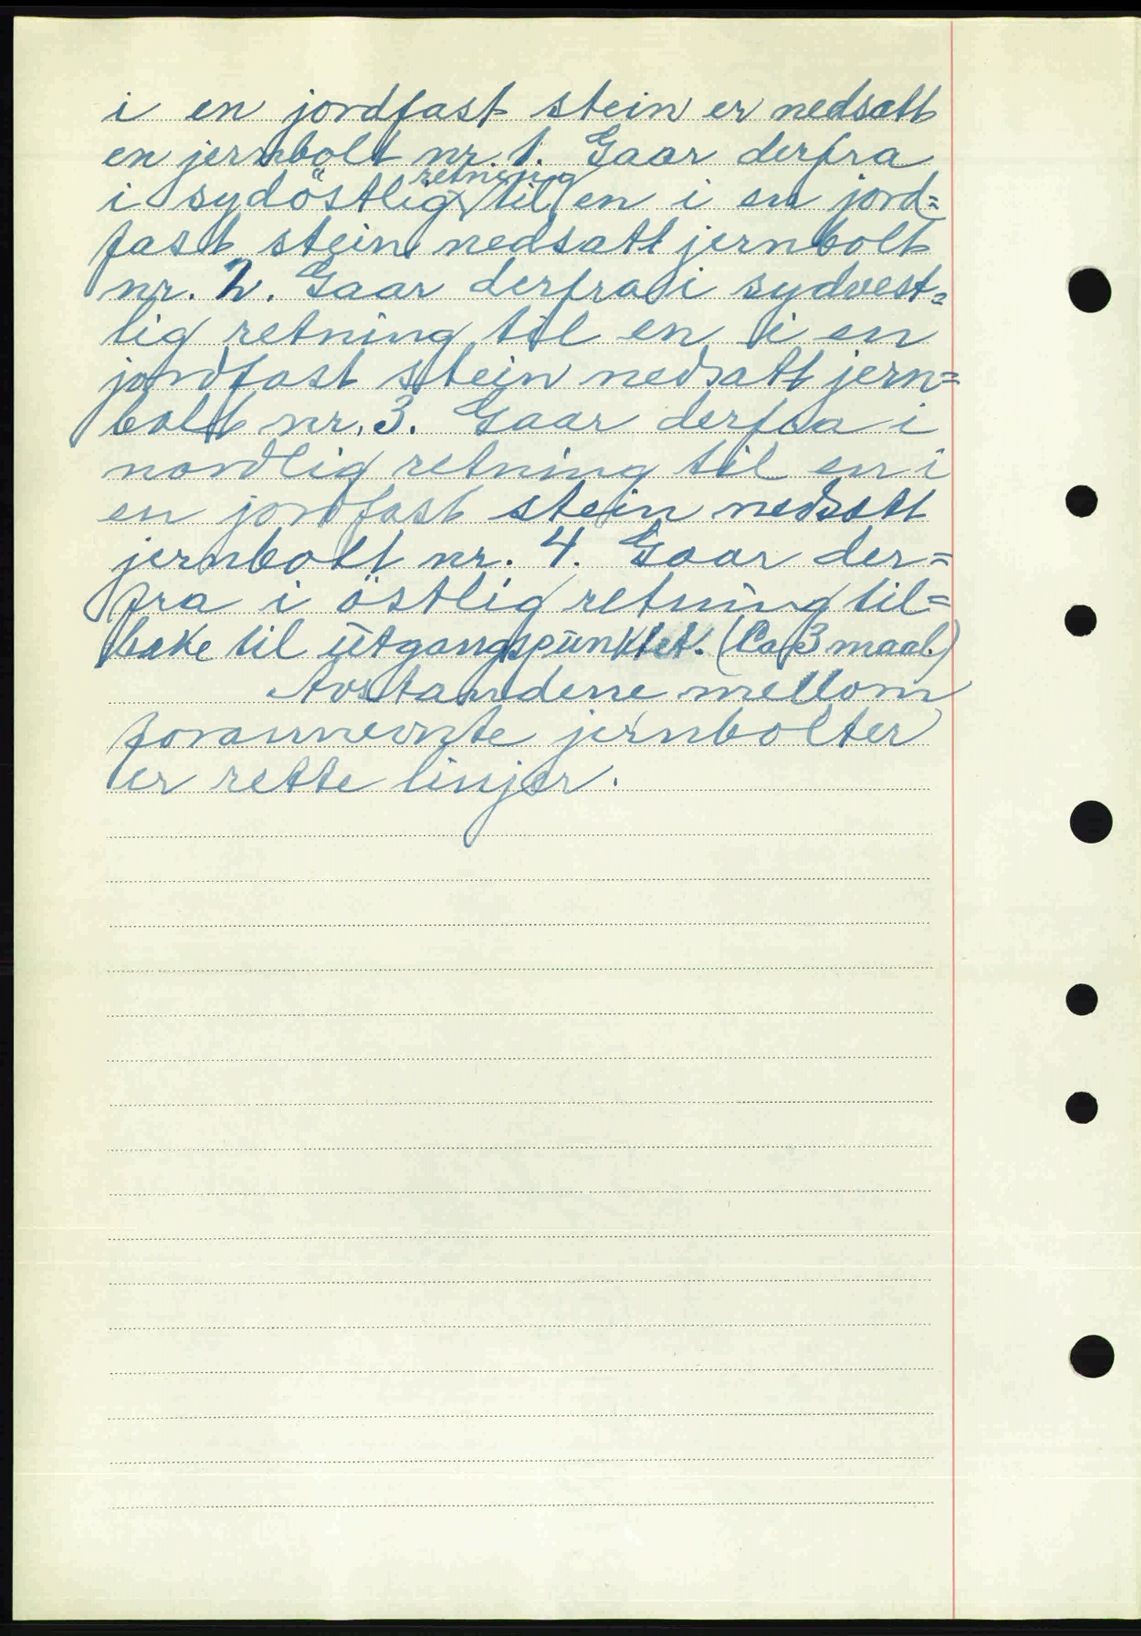 i en jordfast stein er nedsatt
en jernbolt nr. 1. Gaar derfra
i sydöstlig retning til en i en jord=
fast stein nedsatt jernbolt
nr. 2. Gaar derfra i sydvest=
lig retning til en i en
jordfast stein nedsatt jern=
bolt nr. 3. Gaar derfra i
nordlig retning til en i
en jordfast stein nedsatt
jernbolt nr. 4. Gaar der=
fra i östlig retning til=
bake til utgangspunktet. (Ca 3 maal.)
Avstandene mellom
forannevnte jernbolter
er rette linjer.